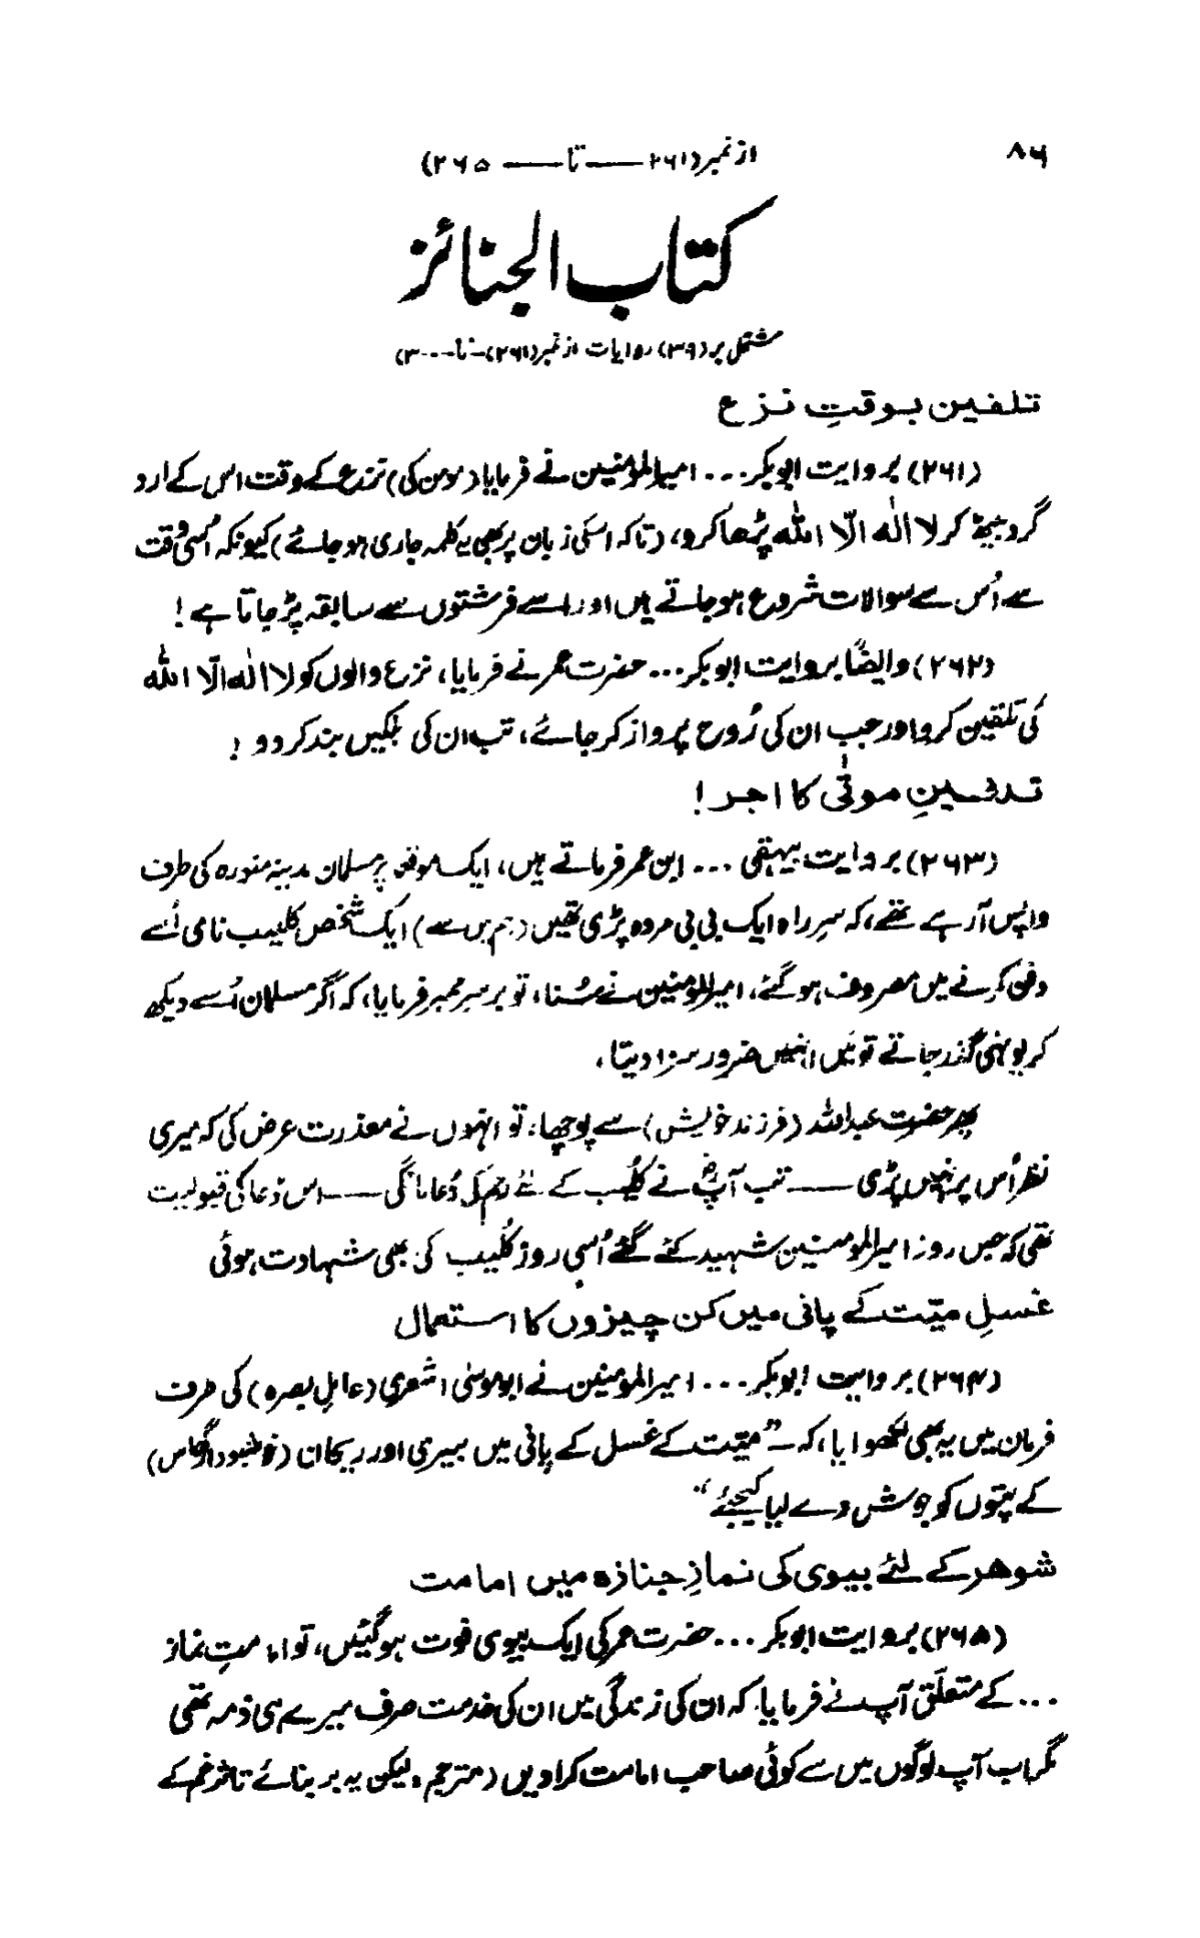 ۸۶
از نمبر (۲۶۱ —— تا —— ۲۶۵)
کتاب الجنائز
مشتمل بر (۳۹) روایات از نمبر (۲۶۱) - تا - ۳۰۰)
تلقین بوقتِ نزع
(۲۶۱) بروایت ابوبکر ... امیرالمؤمنین نے فرمایا (مومن کی) نزع کے وقت اس کے ارد
گرد بیٹھ کر لا الٰہ الّا اللہ پڑھا کرو، (تاکہ اسکی زبان پر بھی یہ کلمہ جاری ہو جائے) کیونکہ اُسی وقت
سے اُس سے سوالات شروع ہو جاتے ہیں اور اسے فرشتوں سے سابقہ پڑ جاتا ہے !
(۲۶۲) وایضًا بروایت ابوبکر ... حضرت عمر نے فرمایا، نزع والوں کو لا الٰہ الّا اللہ
کی تلقین کرو اور جب ان کی رُوح پرواز کر جائے، تب ان کی پلکیں بند کر دو !
تدفینِ موتٰی کا اجر !
(۲۶۳) بروایت بیہقی ... ابن عمر فرماتے ہیں، ایک موقعہ پر مسلمان مدینہ منورہ کی طرف
واپس آرہے تھے، کہ سرِ راہ ایک بی بی مردہ پڑی تھیں (ہم میں سے) ایک شخص کلیب نامی اُسے
دفن کرنے میں مصروف ہو گئے، امیرالمؤمنین نے سُنا، تو برسرِ ممبر فرمایا، کہ اگر مسلمان اُسے دیکھ
کر یونہی گذر جاتے تو میں انہیں ضرور سزا دیتا،
پھر حضرت عبداللہ (فرزند خویش) سے پوچھا، تو انہوں نے معذرت عرض کی کہ میری
نظر اُس پر نہیں پڑی —— تب آپؓ نے کُلیب کے لئے رحم کی دُعا مانگی —— اس دُعا کی قبولیت
تھی کہ جس روز امیرالمؤمنین شہید کئے گئے اُسی روز کُلیب کی بھی شہادت ہوئی
غسلِ میّت کے پانی میں کن چیزوں کا استعمال
(۲۶۴) بروایت ابوبکر ... امیرالمؤمنین نے ابوموسٰی اشعری (عاملِ بصرہ) کی طرف
فرمان میں یہ بھی لکھوایا، کہ — ”میّت کے غسل کے پانی میں بیری اور ریحان (خوشبودار گھاس)
کے پتّوں کو جوش دے لیا کیجئے“
شوہر کے لئے بیوی کی نمازِ جنازہ میں امامت
(۲۶۵) بروایت ابوبکر ... حضرت عمر کی ایک بیوی فوت ہو گئیں، تو امامتِ نماز
... کے متعلّق آپ نے فرمایا کہ ان کی زندگی میں ان کی خدمت صرف میرے ہی ذمہ تھی
مگر اب آپ لوگوں میں سے کوئی صاحب امامت کرا دیں (مترجم: لیکن یہ بر بنائے تاثر غم کے